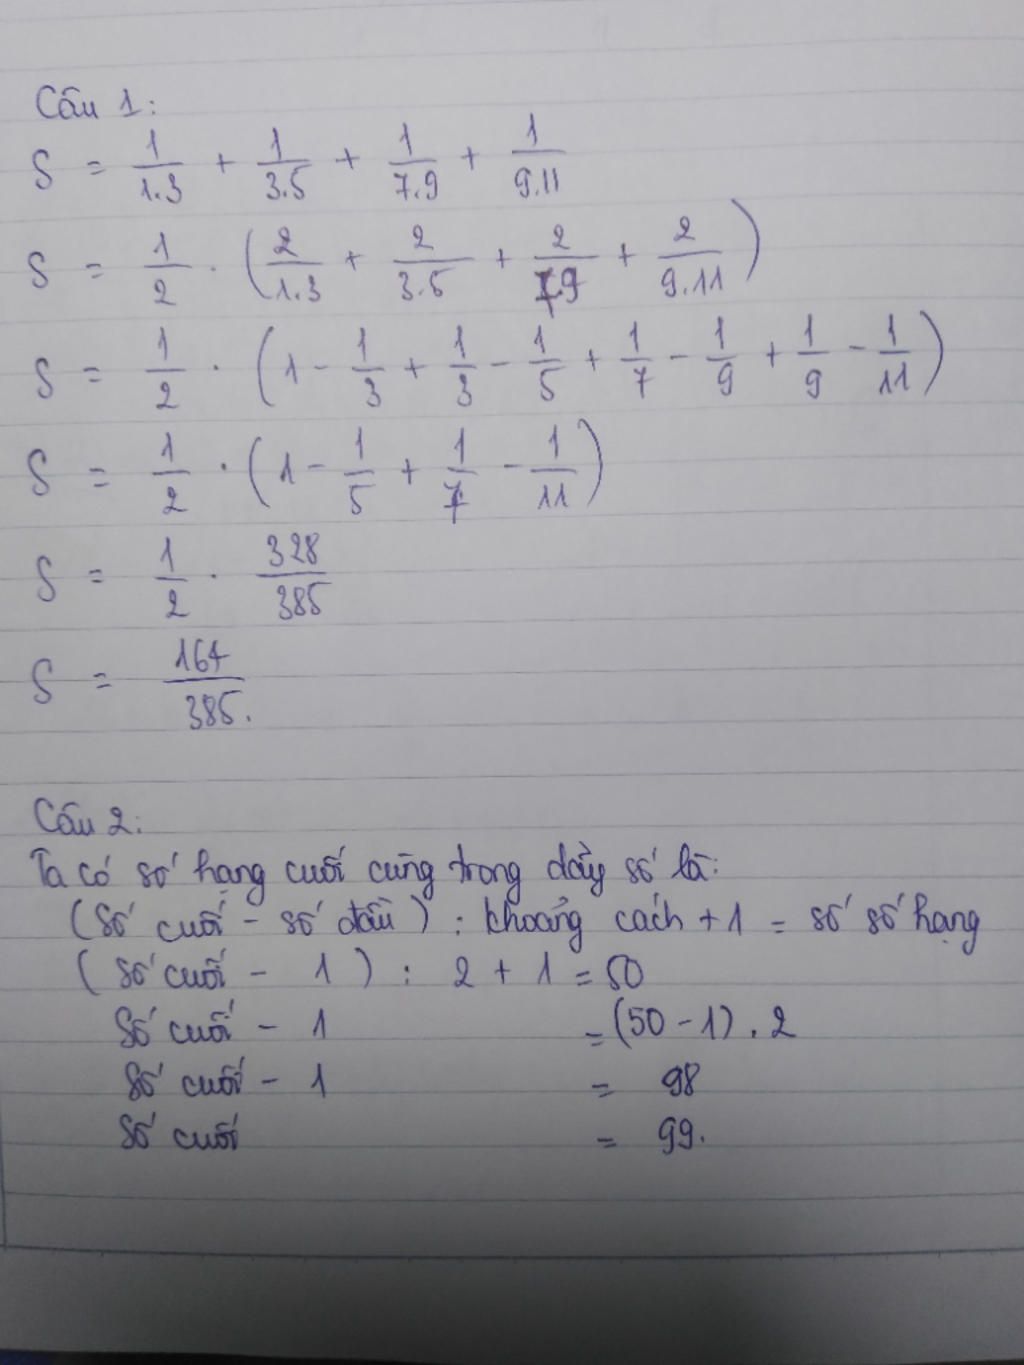 Câu 1:
S = 1/1.3 + 1/3.5 + 1/7.9 + 1/9.11
S = 1/2 . (2/1.3 + 2/3.5 + 2/7.9 + 2/9.11)
S = 1/2 . (1 - 1/3 + 1/3 - 1/5 + 1/7 - 1/9 + 1/9 - 1/11)
S = 1/2 . (1 - 1/5 + 1/7 - 1/11)
S = 1/2 . 328/385
S = 164/385.
Câu 2:
Ta có số hạng cuối cùng trong dãy số là:
(Số cuối - số đầu) : khoảng cách + 1 = số số hạng
(số cuối - 1) : 2 + 1 = 50
Số cuối - 1 = (50 - 1) . 2
Số cuối - 1 = 98
Số cuối = 99.